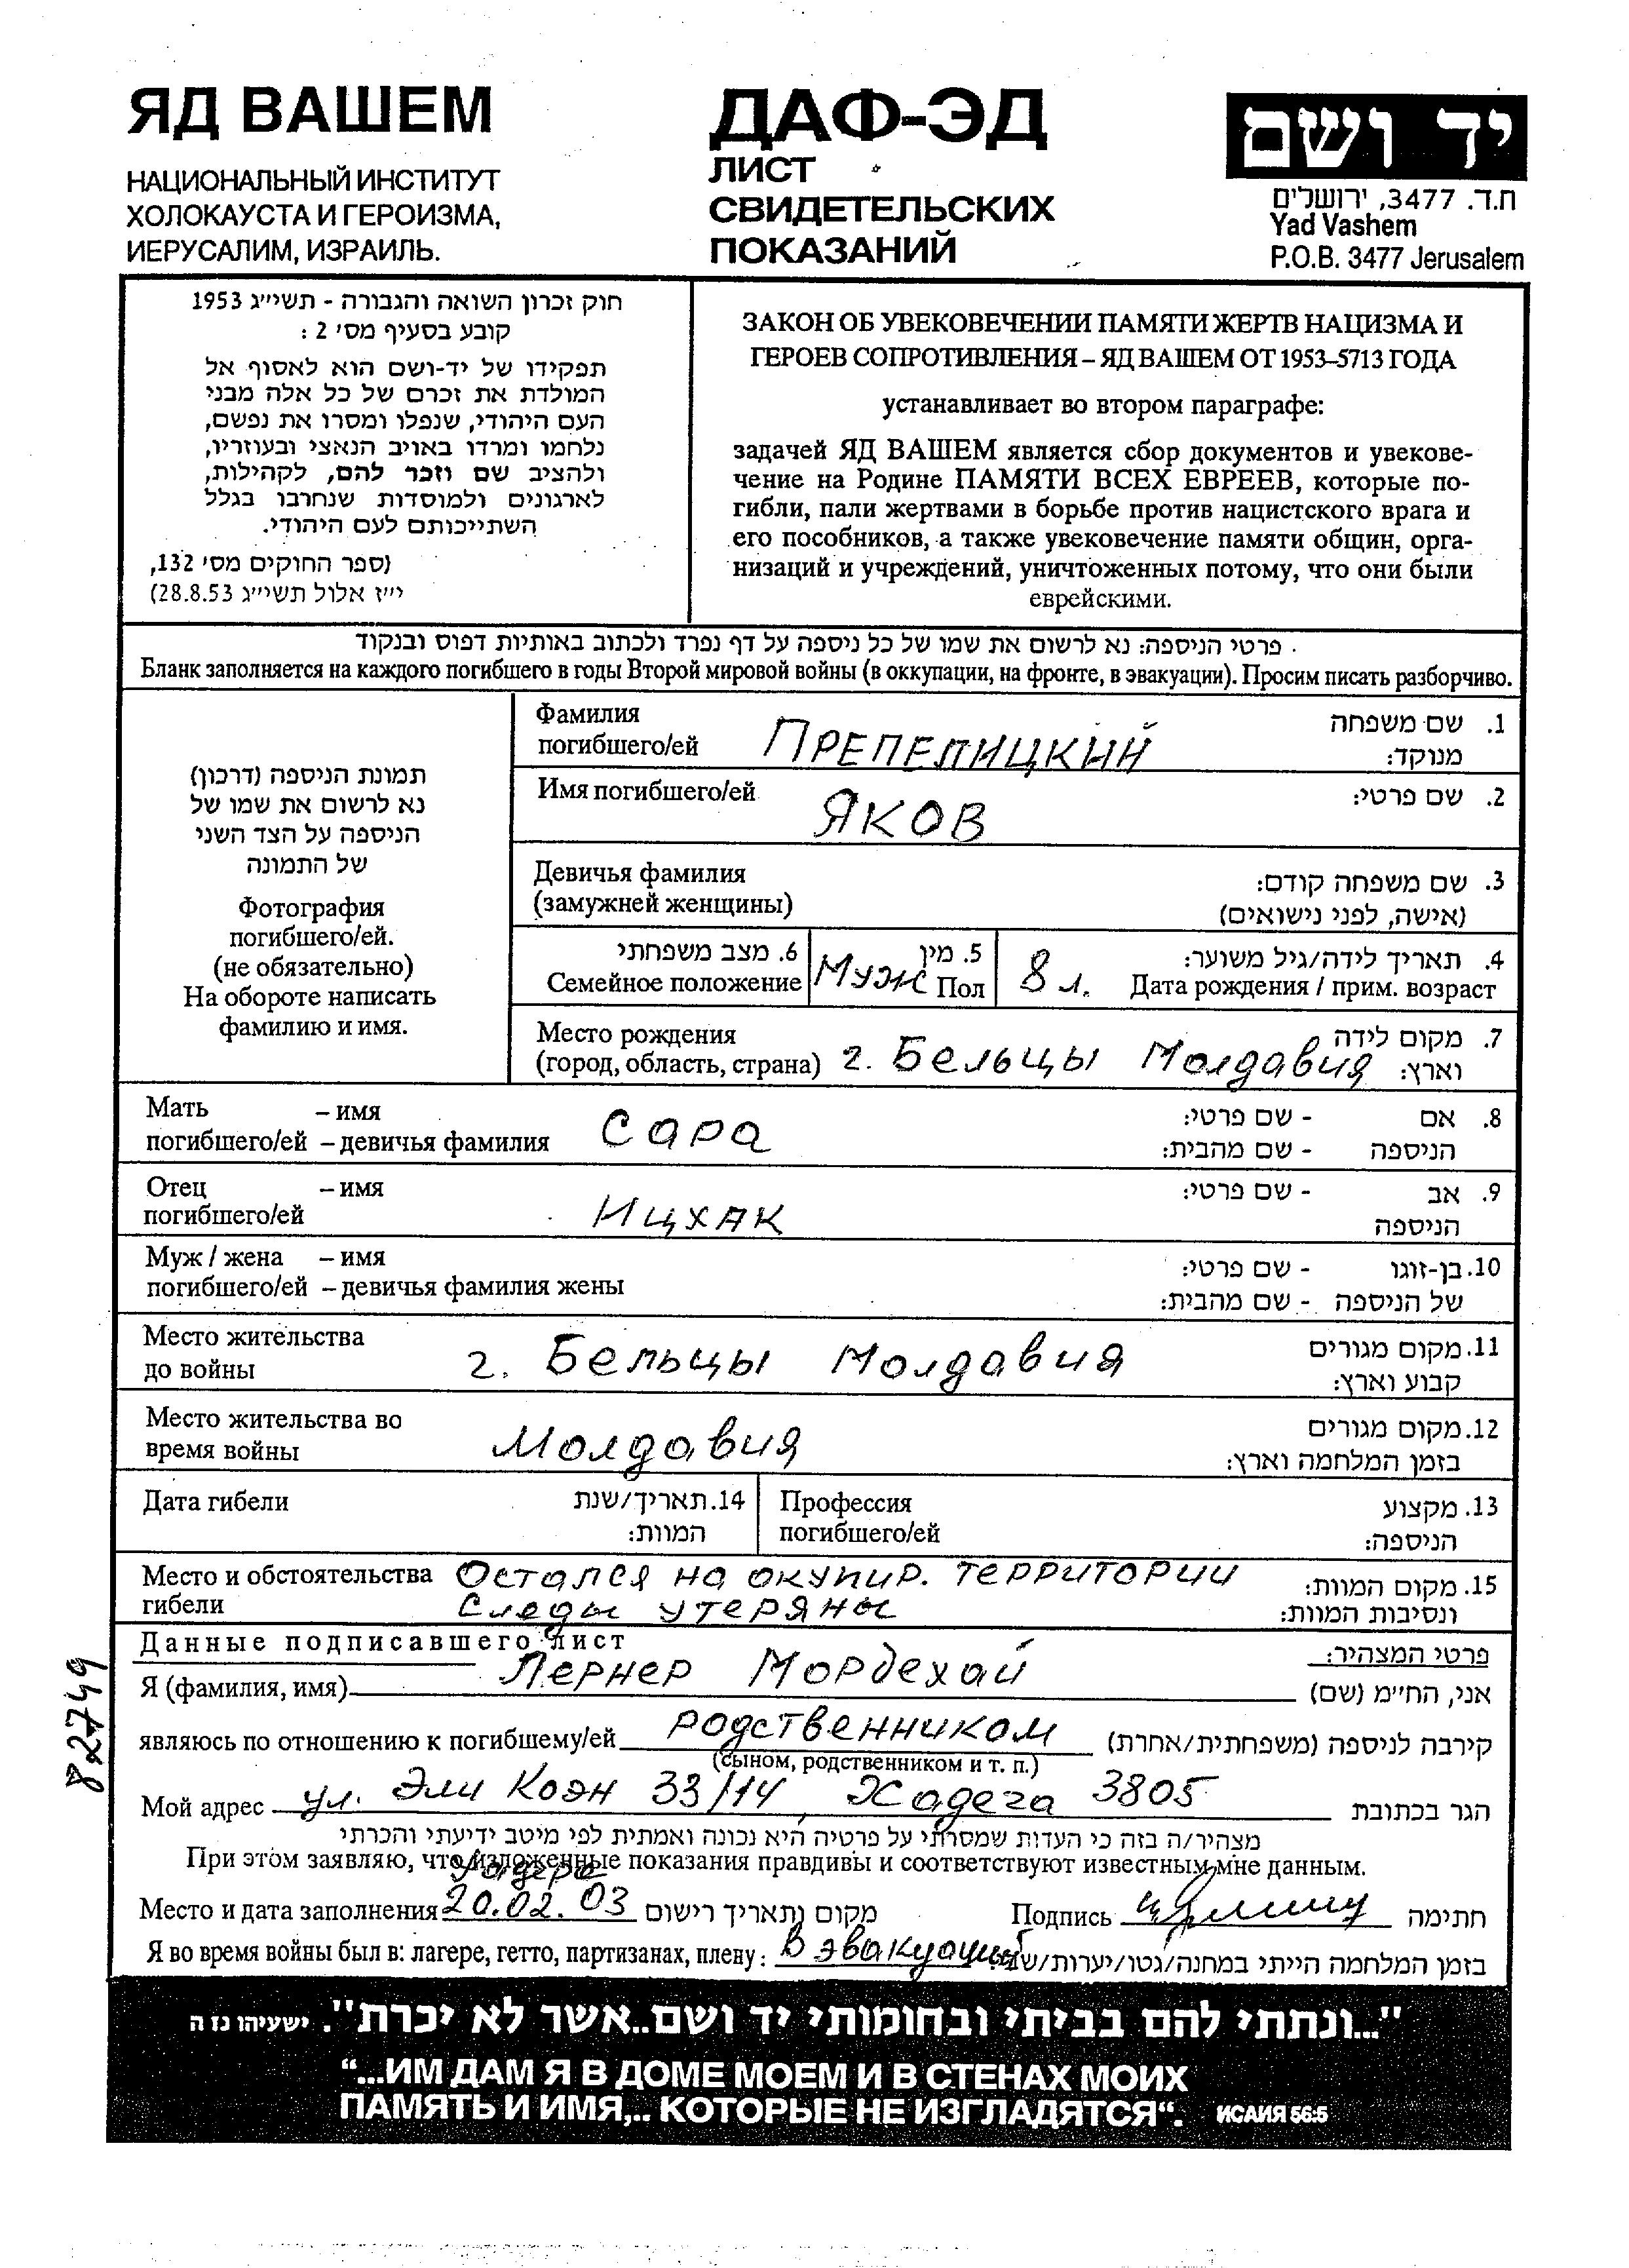 ЯД ВАШЕМ
НАЦИОНАЛЬНЫЙ ИНСТИТУТ
ХОЛОКАУСТА И ГЕРОИЗМА,
ИЕРУСАЛИМ, ИЗРАИЛЬ.
ДАФ-ЭД
ЛИСТ
СВИДЕТЕЛЬСКИХ
ПОКАЗАНИЙ
יד ושם
ת.ד. 3477, ירושלים
Yad Vashem
P.O.B. 3477 Jerusalem
חוק זכרון השואה והגבורה - תשי״ג 1953
קובע בסעיף מס׳ 2 :
תפקידו של יד-ושם הוא לאסוף אל
המולדת את זכרם של כל אלה מבני
העם היהודי, שנפלו ומסרו את נפשם,
נלחמו ומרדו באויב הנאצי ובעוזריו,
ולהציב שם וזכר להם, לקהילות,
לארגונים ולמוסדות שנחרבו בגלל
השתייכותם לעם היהודי.
(ספר החוקים מס׳ 132,
י״ז אלול תשי״ג 28.8.53)
ЗАКОН ОБ УВЕКОВЕЧЕНИИ ПАМЯТИ ЖЕРТВ НАЦИЗМА И
ГЕРОЕВ СОПРОТИВЛЕНИЯ – ЯД ВАШЕМ ОТ 1953–5713 ГОДА
устанавливает во втором параграфе:
задачей ЯД ВАШЕМ является сбор документов и увекове-
чение на Родине ПАМЯТИ ВСЕХ ЕВРЕЕВ, которые по-
гибли, пали жертвами в борьбе против нацистского врага и
его пособников, а также увековечение памяти общин, орга-
низаций и учреждений, уничтоженных потому, что они были
еврейскими.
פרטי הניספה: נא לרשום את שמו של כל ניספה על דף נפרד ולכתוב באותיות דפוס ובנקוד
Бланк заполняется на каждого погибшего в годы Второй мировой войны (в оккупации, на фронте, в эвакуации). Просим писать разборчиво.
תמונת הניספה (דרכון)
נא לרשום את שמו של
הניספה על הצד השני
של התמונה
Фотография
погибшего/ей.
(не обязательно)
На обороте написать
фамилию и имя.
Фамилия 1. שם משפחה
погибшего/ей ПРЕПЕЛИЦКИЙ מנוקד:
Имя погибшего/ей ЯКОВ 2. שם פרטי:
Девичья фамилия 3. שם משפחה קודם:
(замужней женщины) (אישה, לפני נישואים)
6. מצב משפחתי 5. מין 4. תאריך לידה/גיל משוער:
Семейное положение Муж Пол 8 л. Дата рождения / прим. возраст
Место рождения 7. מקום לידה
(город, область, страна) г. Бельцы Молдавия וארץ:
Мать – имя Сара 8. אם - שם פרטי:
погибшего/ей – девичья фамилия הניספה - שם מהבית:
Отец – имя 9. אב - שם פרטי:
погибшего/ей Ицхак הניספה
Муж / жена – имя 10. בן-זוגו - שם פרטי:
погибшего/ей – девичья фамилия жены של הניספה - שם מהבית:
Место жительства 11. מקום מגורים
до войны г. Бельцы Молдавия קבוע וארץ:
Место жительства во 12. מקום מגורים
время войны Молдавия בזמן המלחמה וארץ:
Дата гибели 14. תאריך/שנת המוות:
Профессия 13. מקצוע
погибшего/ей הניספה:
Место и обстоятельства Остался на окупир. территории 15. מקום המוות:
гибели Следы утеряны ונסיבות המוות:
Данные подписавшего лист פרטי המצהיר:
Я (фамилия, имя) Лернер Мордехай אני, החי״מ (שם)
являюсь по отношению к погибшему/ей родственником קירבה לניספה (משפחתית/אחרת)
(сыном, родственником и т. п.)
Мой адрес ул. Эли Коэн 33/14, Хадера 3805 הגר בכתובת
מצהיר/ה בזה כי העדות שמסרתי על פרטיה היא נכונה ואמתית לפי מיטב ידיעתי והכרתי
При этом заявляю, что изложенные показания правдивы и соответствуют известным мне данным.
Хадера
Место и дата заполнения 20.02.03 מקום ותאריך רישום Подпись חתימה
Я во время войны был в: лагере, гетто, партизанах, плену: В эвакуации בזמן המלחמה הייתי במחנה/גטו/יערות/
82749
"...ונתתי להם בביתי ובחומותי יד ושם..אשר לא יכרת". ישעיהו נז ה
“...ИМ ДАМ Я В ДОМЕ МОЕМ И В СТЕНАХ МОИХ
ПАМЯТЬ И ИМЯ,.. КОТОРЫЕ НЕ ИЗГЛАДЯТСЯ“. ИСАИЯ 56:5